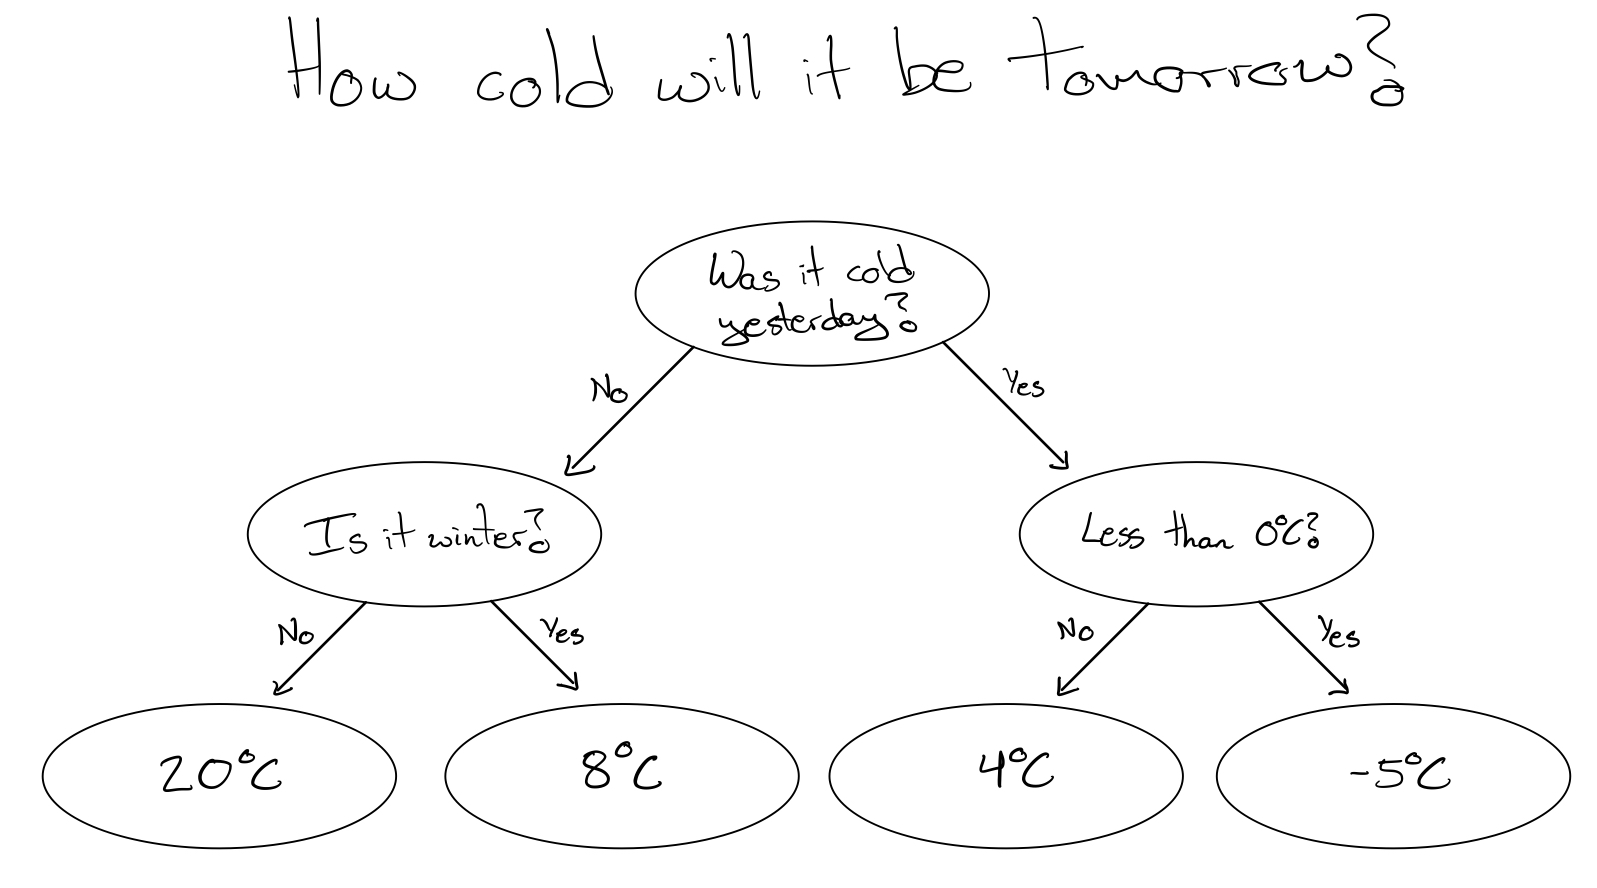 How cold will it be tomorrow?
Was it cold
yesterday?
No
Yes
Is it winter?
Less than 0°C?
No
Yes
No
Yes
20°C
8°C
4°C
-5°C